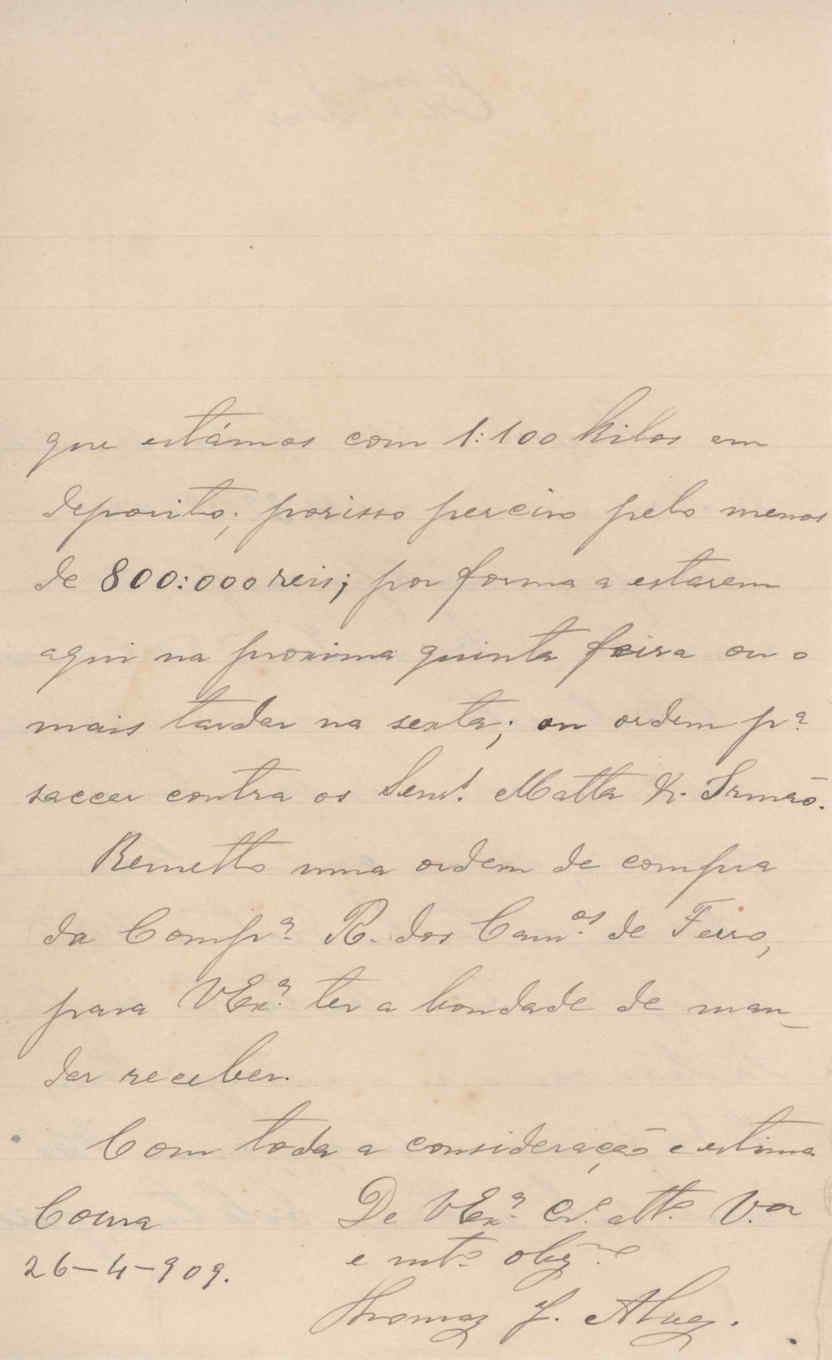 que estámos com 1:100 kilos em
deposito; porisso perciso pelo menos
de 800:000 reis; por forma a estarem
aqui na proxima quinta feira ou o
mais tardar na sexta; ou ordem pª
saccar contra os Senrs. Matta & Irmão.
Remetto uma ordem de compra
da Compª R. dos Camos. de Ferro,
para VExª. ter a bondade de man_
dar receber.
Com toda a consideração e estima
Coura
26-4-909.
De VExª. Cr.º att.º V.or
e mt.º obg.º
Thomaz J.